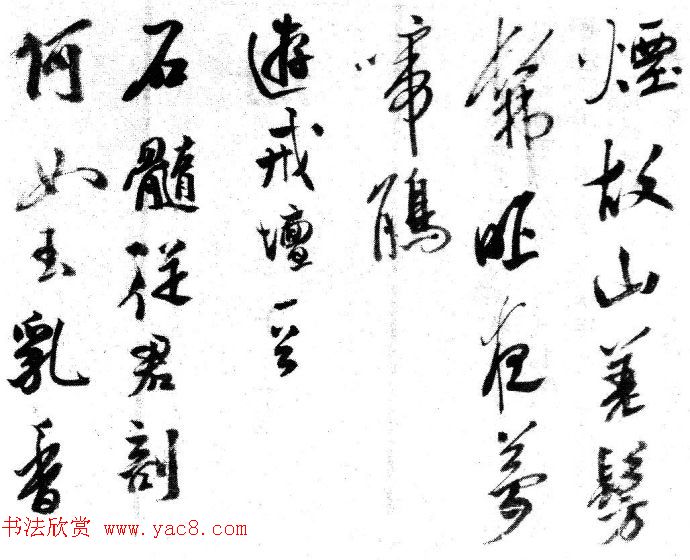 煙故山差髣
髴昨夜夢
啼鵑
遊戒壇一首
石髓從君剖
何如玉乳香
书法欣赏 www.yac8.com